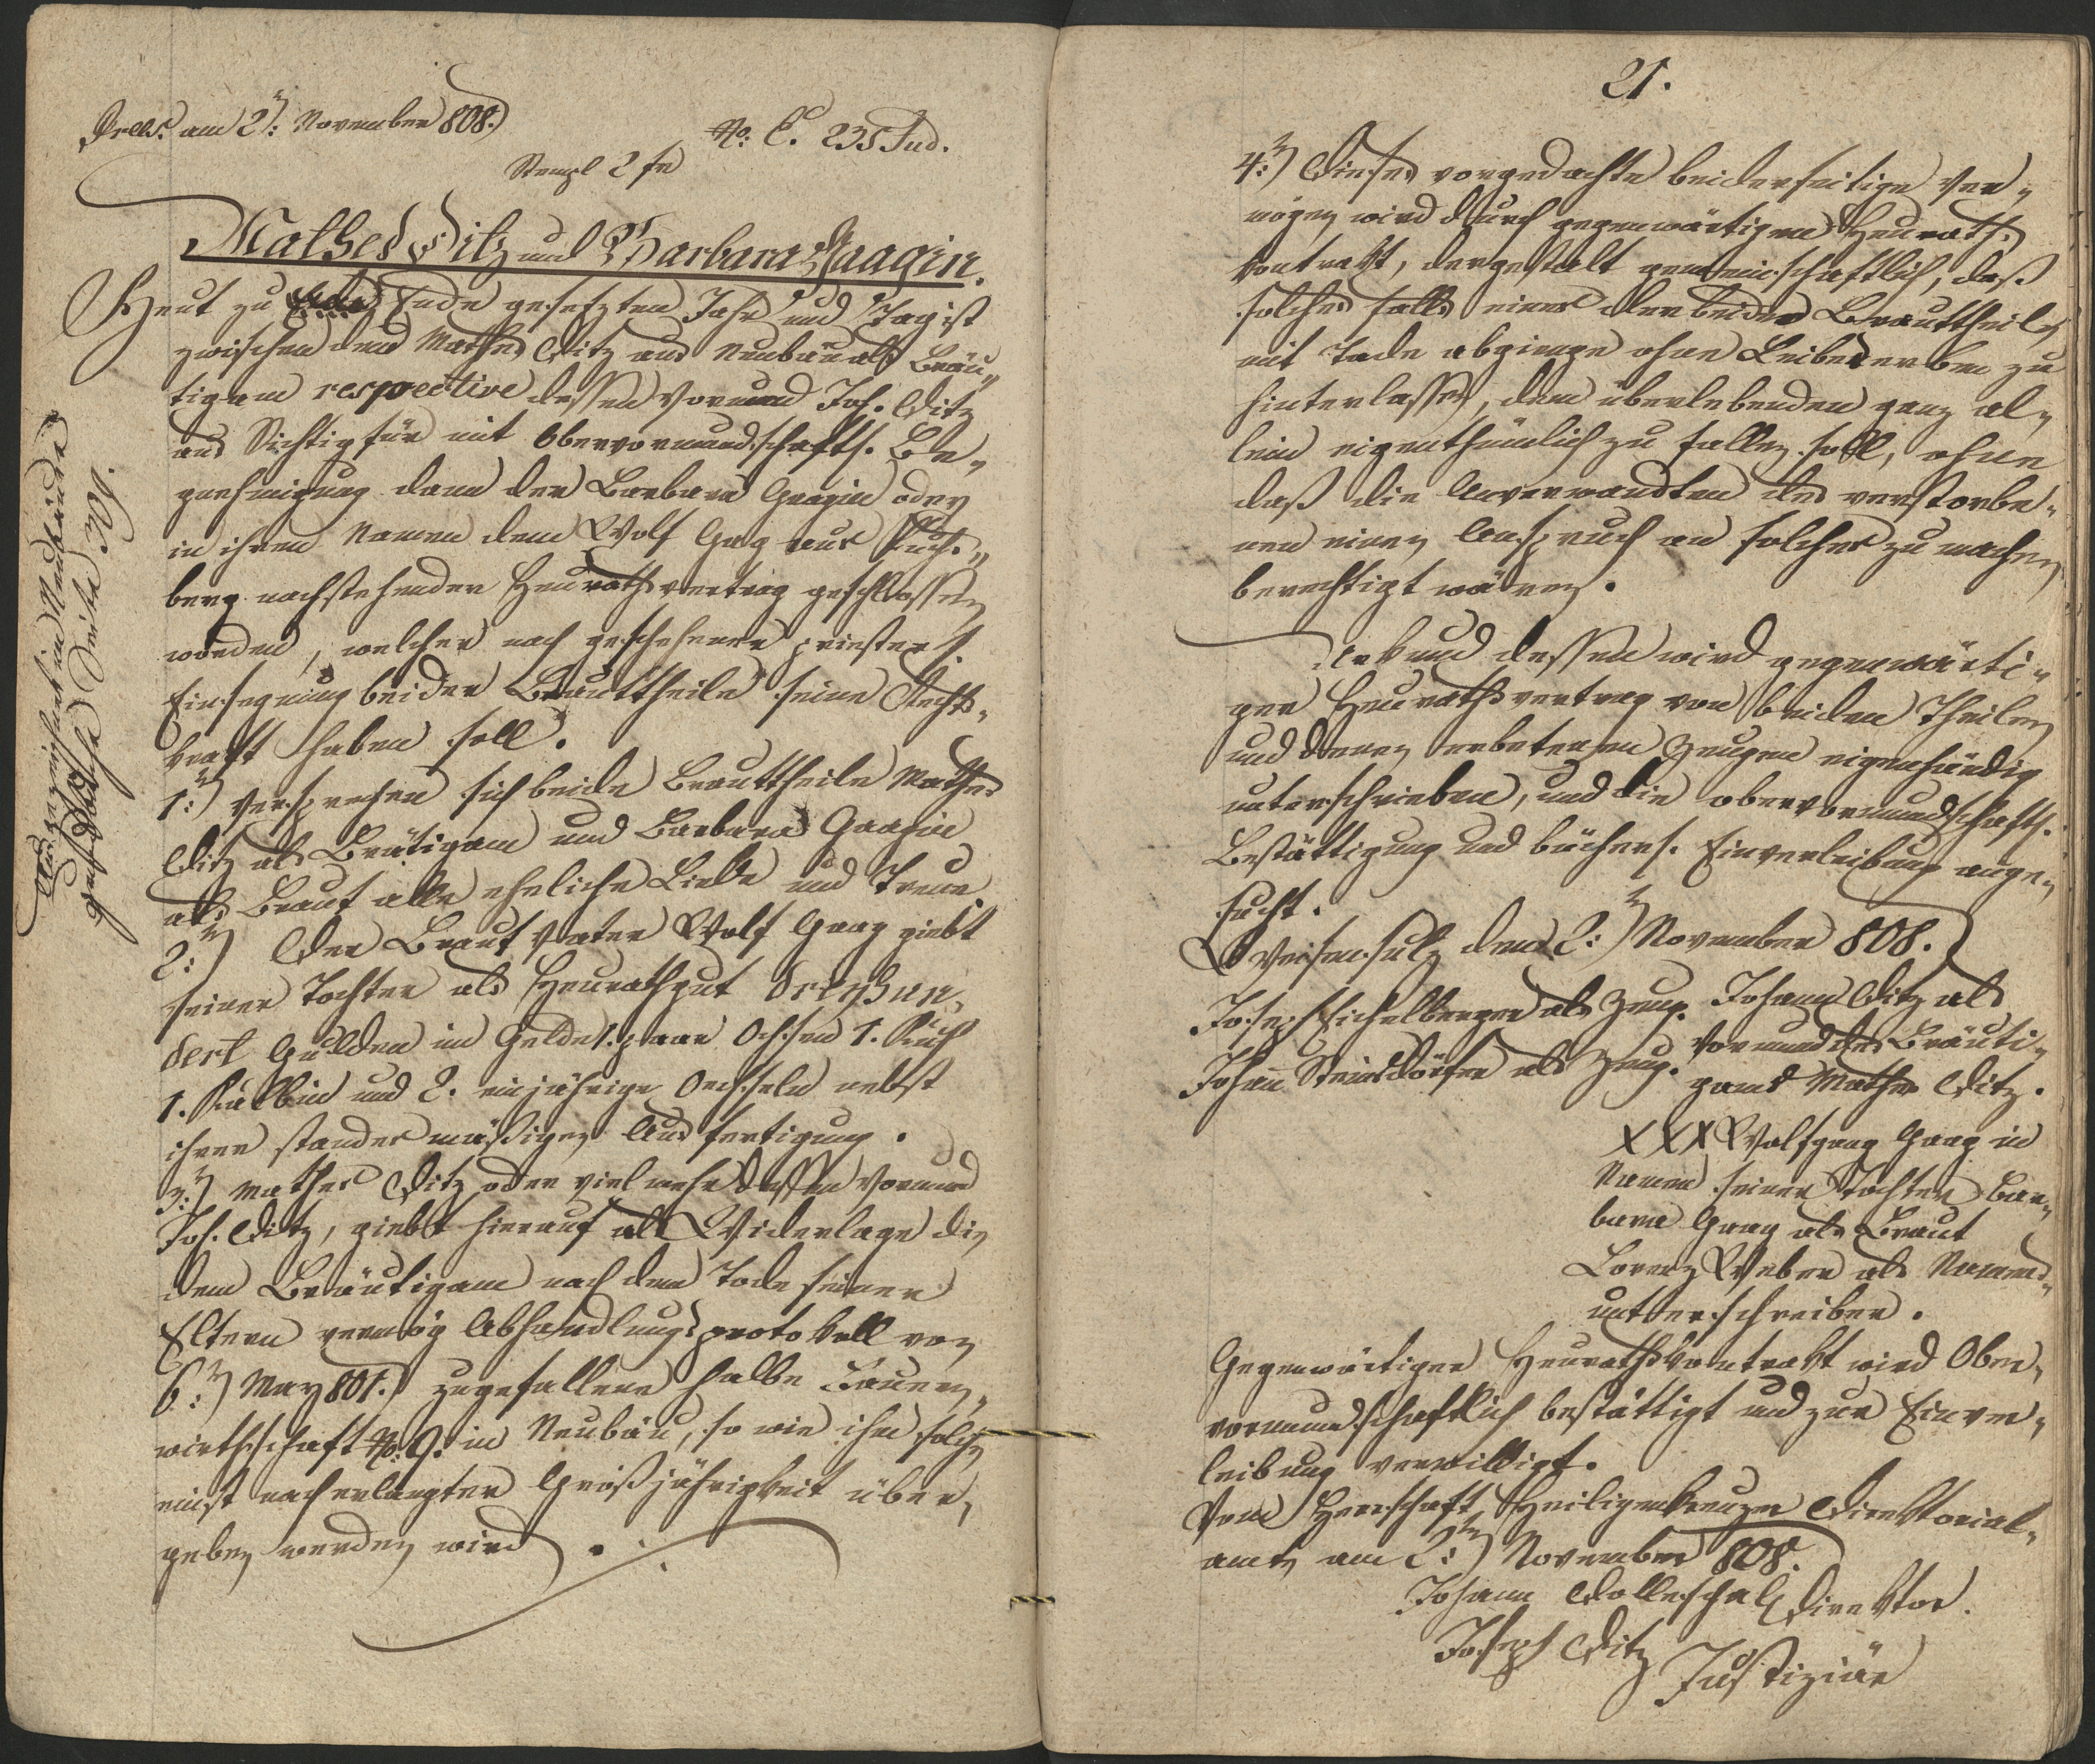 Præs. am 2: November 808.
No: E. 235 Jud.
Stempl 2 fr
Mathes Ditz und Barbara Gaagin.
Heut zu Ende gesetzten Jahr und Tag ist
zwischen dem Mathes Ditz aus Neubäu als Bräu„
tigam respective dessen Vormund Joh. Ditz
aus Sichtigfür mit Obervormundschaftl. Be„
gnehmigung dann der Barbara Gaagin oder
in ihrem Namen dem Wolf Gag aus Fuchs„
berg nachstehender Heurathsvertrag geschlossen
worden, welcher nach geschehener priesterl.
Einsegnung beider Brauttheile seine Rechts„
kraft haben soll.
1:) Versprechen sich beide Brauttheile Mathes
Ditz als Brätigam und Barbara Gaagin
als Braut alle eheliche Liebe und Treue.
2:) Der Braut Vater Wolf Gaag giebt
seiner Tochter als Heurathgut dreyhun„
dert Gulden im Gelde 1. paar Ochsen 1. Kuh
1. Kalbin und 2. einjährige Oechseln nebst
ihrer standesmäßigen Ausfertigung.
3:) Mathes Ditz oder vielmehr dessen Vormund
Joh. Ditz, giebt hierauf als Widerlage die
dem Bräutigam nach dem Tode seiner
Eltern vermög Abhandlungsprotokoll von
6:) May 801. zugefallene halbe Bauern„
wirthschaft No. 9. in Neubäu, so wie ihm solche
einst nach erlangter Großjährigkeit über„
geben werden wird.
im
Seite 309.
21.
4:) Dieses vorgedachte beiderseitige Ver„
mögen wird durch gegenwärtigen Heuraths
Kontrakt, dergestalt gemeinschaftlich, daß
solches falls einer der beiden Brauttheile
mit Tode abgienge ohne Leibeserben zu
hinterlassen, dem überlebenden ganz al„
lein eigenthümlich zu fallen soll, ohne
daß die Anverwandten des verstorbe„
nen einen Anspruch an solches zu machen
berechtigt wären.
Urkund dessen wird gegenwärti„
ger Heurathsvertrag von beiden Theilen
und denen erbetenen Zeugen eigenhändig
unterschrieben, und die obervormundschaftl.
Bestättigung und bücherl. Einverleibung ange„
sucht.
Weisensulz den 2:) November 808.
Joseph Eichelberger als Zeug.
Johann Steinsdörfer als Zeug.
Johann Ditz als
Vormund des Bräuti„
gams Mathes Ditz.
XXX Wolfgang Gaag in
Namen seiner Tochter Bar„
bara Gaag als Braut
Lorenz Weber als Namens„
unterschreiber.
Gegenwärtiger Heurathskontrakt wird Ober„
vormundschaftlich bestättigt und zur Einver„
leibung verwilligt.
Vom Herrschaft Heiligenkreuzer Direktorial„
amte am 2:) November 808.
Johann Dolleschal Direktor.
Joseph Ditz Justiziär